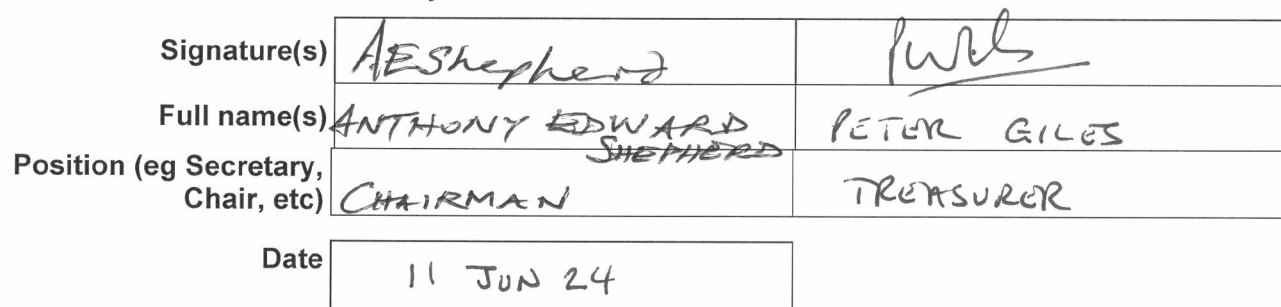 Signature(s) AEShepherd
Full name(s) ANTHONY EDWARD SHEPHERD PETER GILES
Position (eg Secretary, Chair, etc) CHAIRMAN TREASURER
Date 11 JUN 24